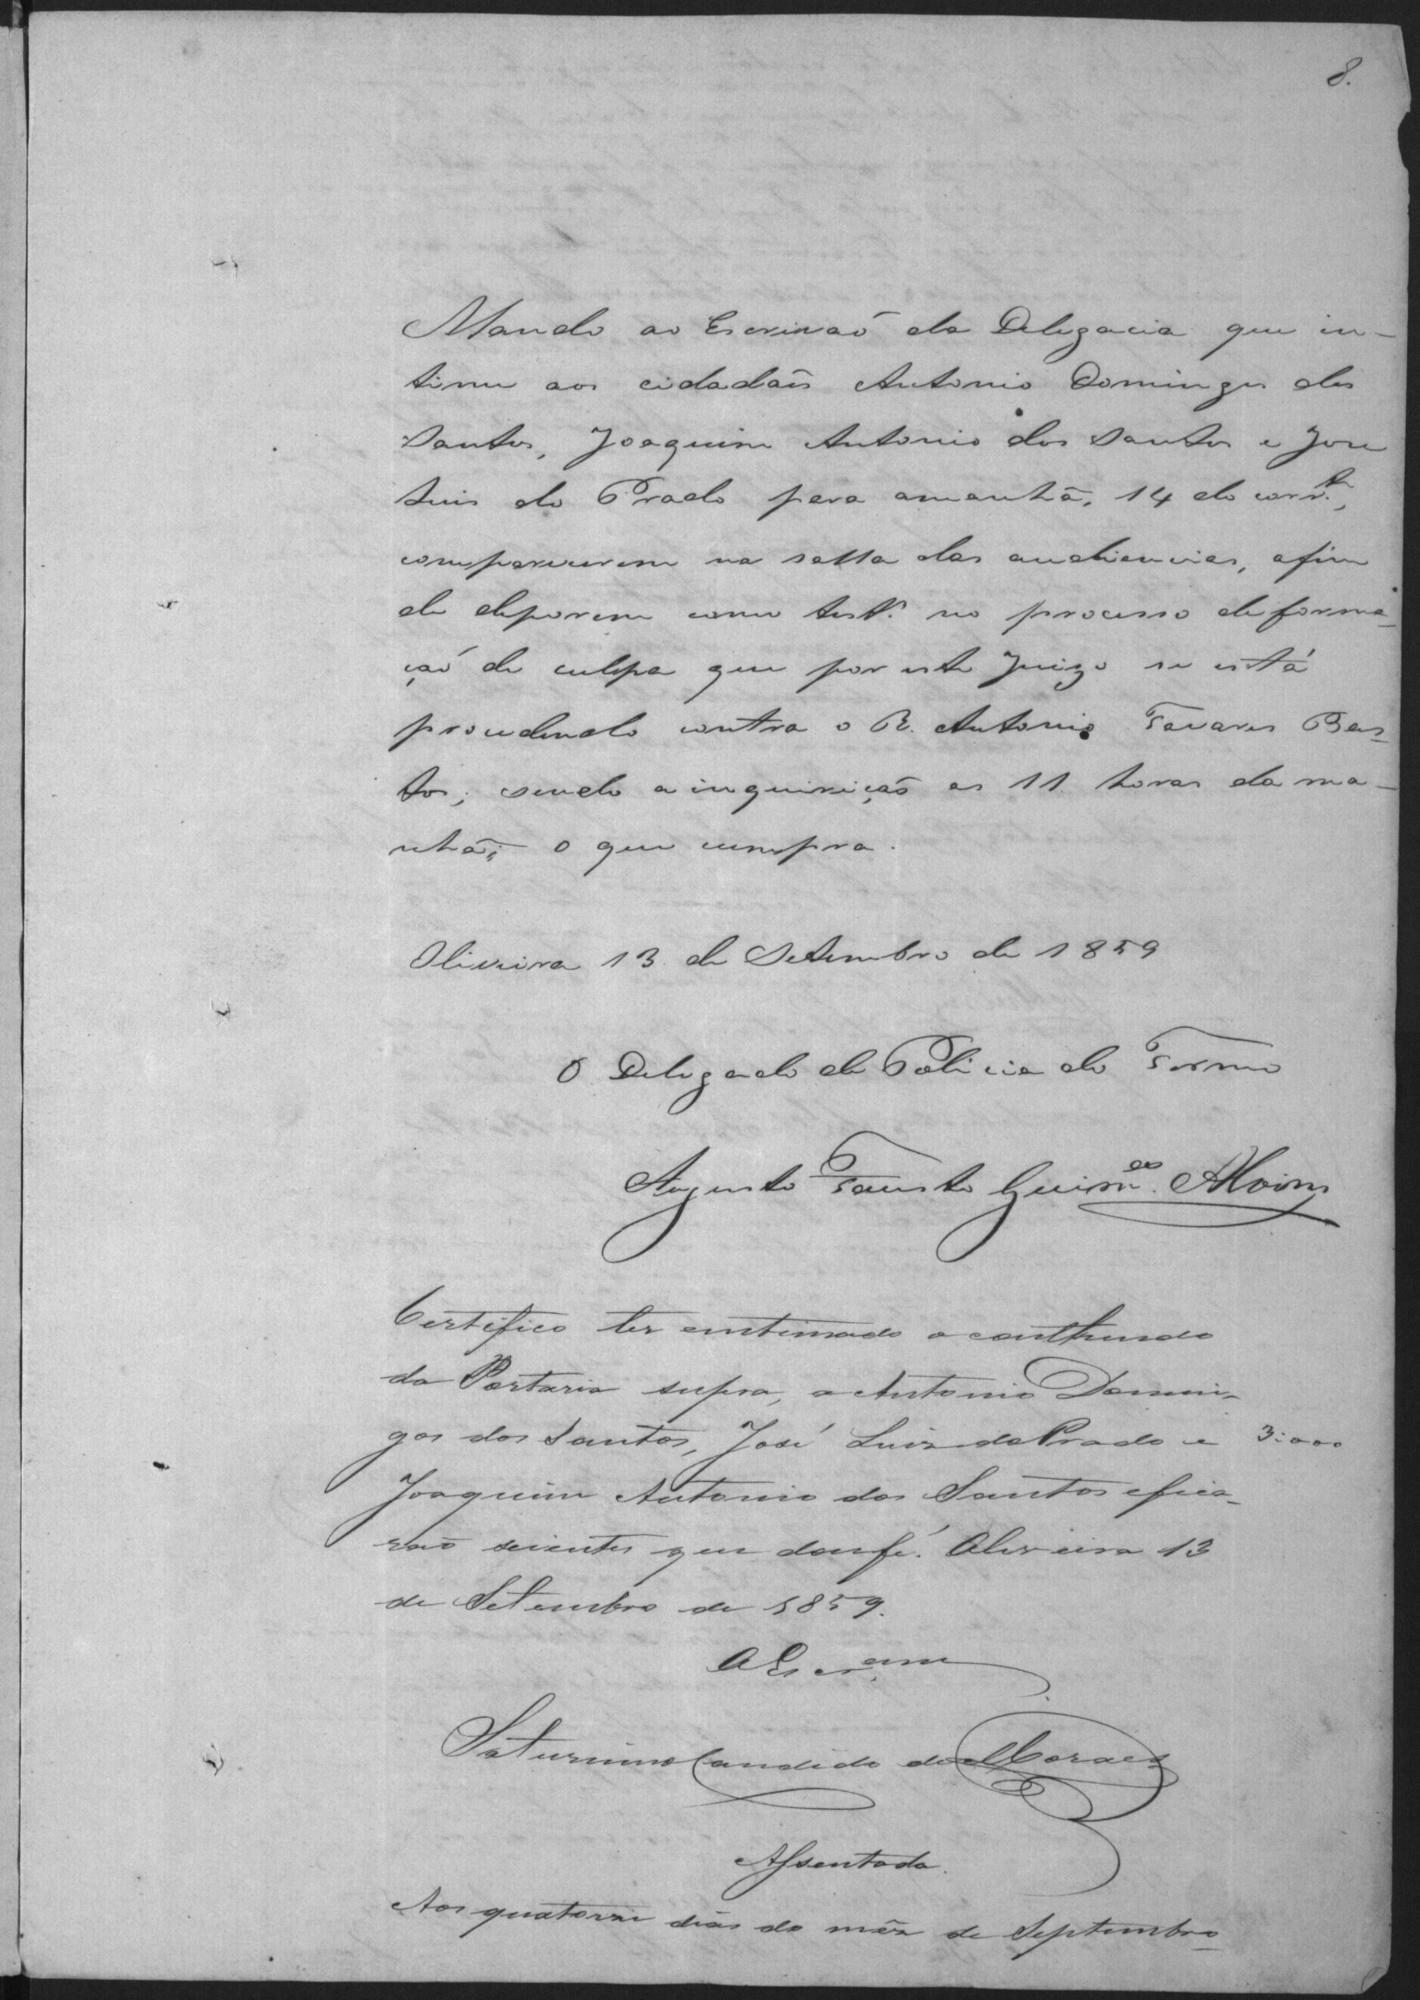 8.
Mando ao Escrivaõ da Delegacia que in-
time aos cidadaõs Antonio Domingos dos
Santos, Joaquim Antonio dos Santos e José
Luis do Prado para amanhã, 14 do corr.te,
comparecerem na salla das audiencias, afim
de deporem como test.as no processo de forma-
çaõ de culpa que por este Juizo se está
procedendo contra o R. Antonio Tavares Bas-
tos; sendo a inquiriçaõ as 11 horas da ma-
nhã; o que cumpra.
Oliveira 13 de Setembro de 1859
O Delegado de Policia do Termo
Augusto Fausto Guim.es Alvim
Certifico ter entimado o conthendo
da Portaria supra, a Antonio Domin-
gos dos Santos, José Luiz do Prado e 3:000
Joaquim Antonio dos Santos e fica-
raõ scientes que dou fé. Oliveira 13
de Setembro de 1859.
O Escr.am
Saturnino Candido de Moraes
Assentada.
Aos quatorze dias do mêz de Septembro